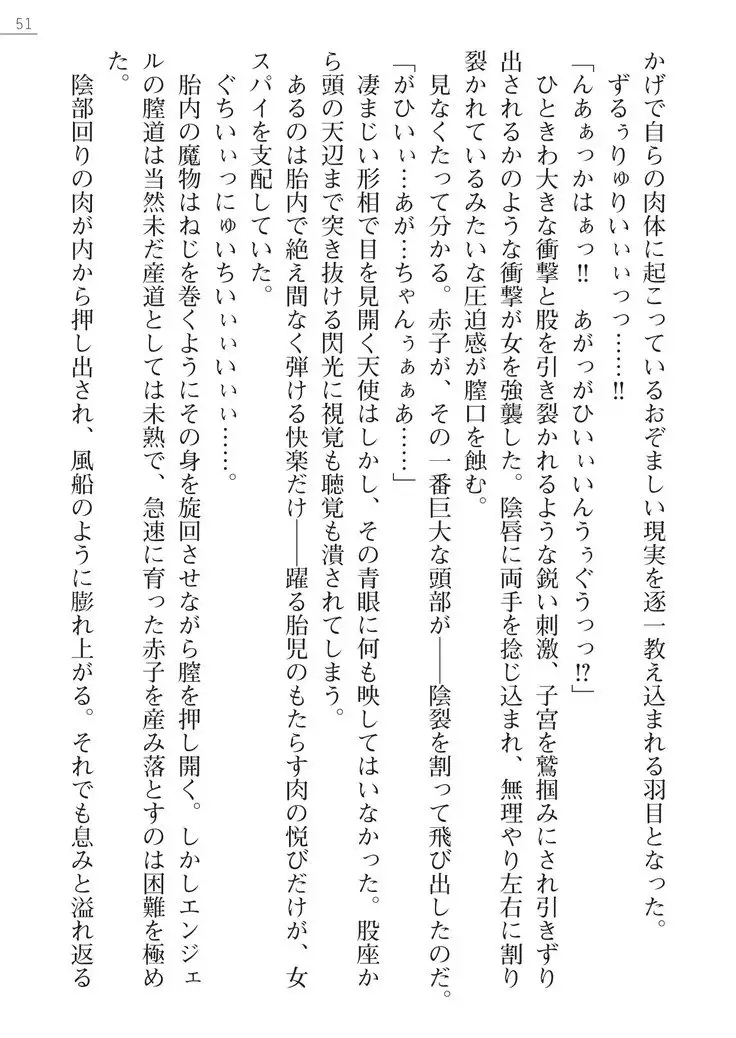 51
かげで自らの肉体に起こっているおぞましい現実を逐一教え込まれる羽目となった。
ずるぅりゅりぃぃぃっっ……!!
「んあぁっかはぁっ!!　あがっがひいぃいんうぅぐうっっ!?」
ひときわ大きな衝撃と股を引き裂かれるような鋭い刺激、子宮を鷲掴みにされ引きずり
出されるかのような衝撃が女を強襲した。陰唇に両手を捻じ込まれ、無理やり左右に割り
裂かれているみたいな圧迫感が膣口を蝕む。
見なくたって分かる。赤子が、その一番巨大な頭部が――陰裂を割って飛び出したのだ。
「がひいぃ…あが…ちゃんぅぁぁあ……」
凄まじい形相で目を見開く天使はしかし、その青眼に何も映してはいなかった。股座か
ら頭の天辺まで突き抜ける閃光に視覚も聴覚も潰されてしまう。
あるのは胎内で絶え間なく弾ける快楽だけ――躍る胎児のもたらす肉の悦びだけが、女
スパイを支配していた。
ぐちいぃっにゅいちいぃぃいぃぃ……。
胎内の魔物はねじを巻くようにその身を旋回させながら膣を押し開く。しかしエンジェ
ルの膣道は当然未だ産道としては未熟で、急速に育った赤子を産み落とすのは困難を極め
た。
陰部回りの肉が内から押し出され、風船のように膨れ上がる。それでも息みと溢れ返る